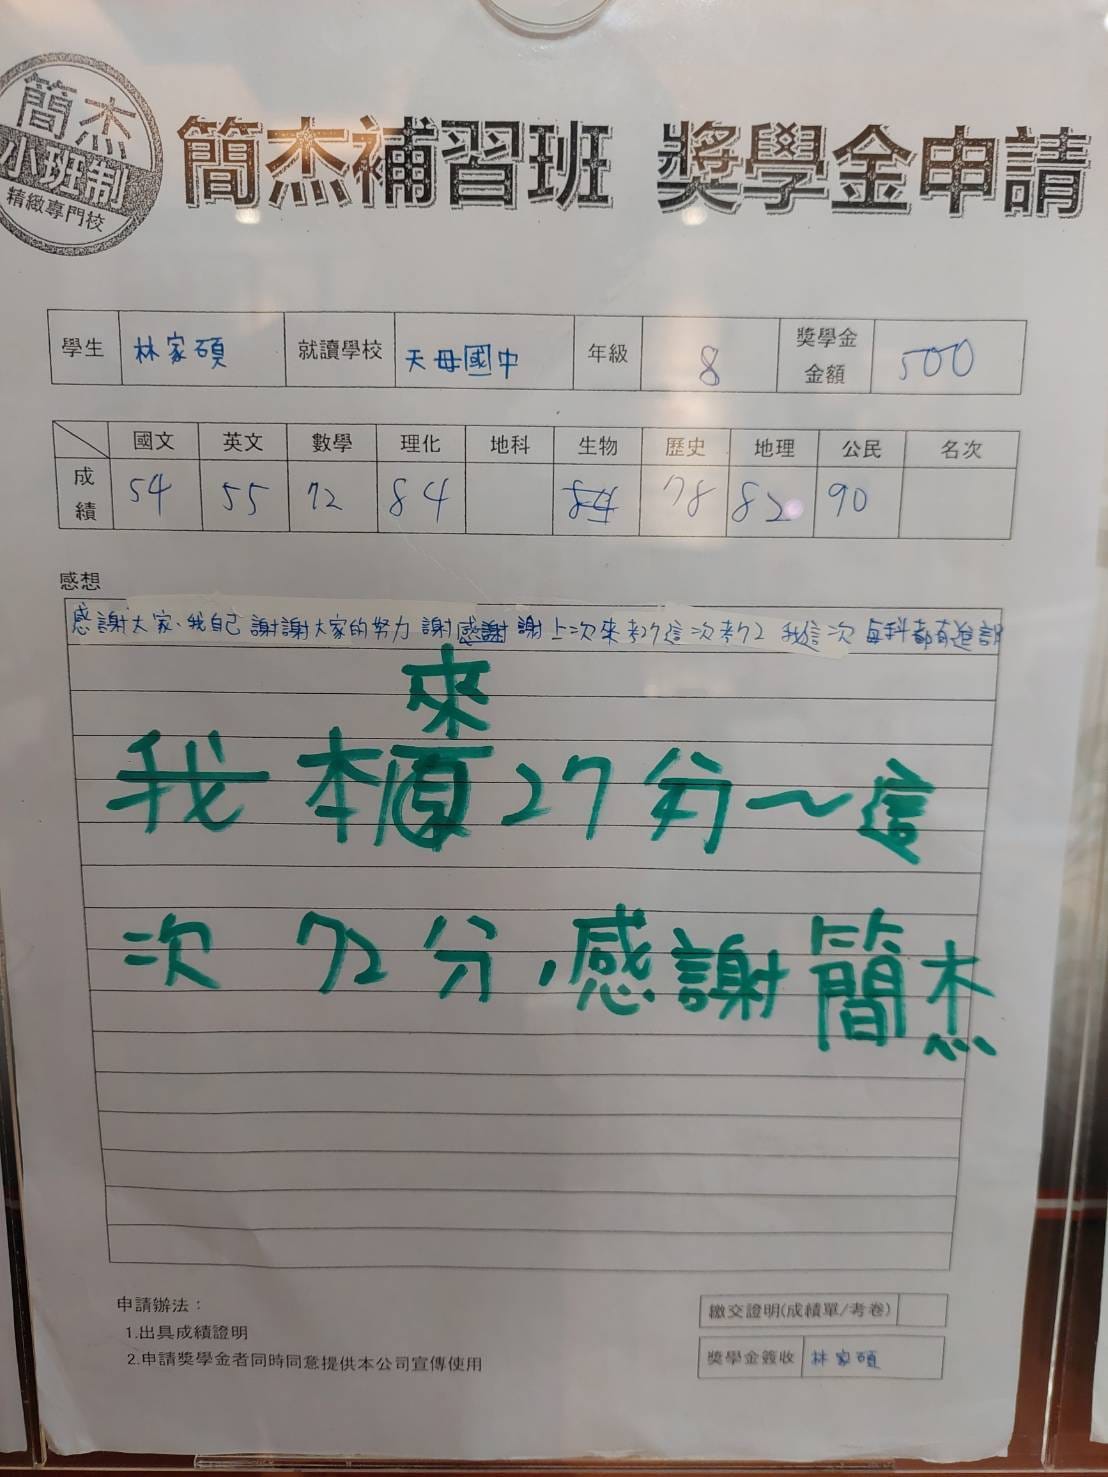 簡杰
小班制
精緻專門校
簡杰補習班 獎學金申請
學生 林家碩 就讀學校 天母國中 年級 8 獎學金金額 500
國文 英文 數學 理化 地科 生物 歷史 地理 公民 名次
成績 54 55 72 84 78 82 90
感想
感謝大家、我自己 謝謝大家的努力 謝感謝謝 上次來考27這次考72 我這次 每科都有進
來
我 本 27分~這
次 72分,感謝簡杰
申請辦法：
1.出具成績證明
2.申請獎學金者同時同意提供本公司宣傳使用
繳交證明(成績單/考卷)
獎學金簽收 林家碩